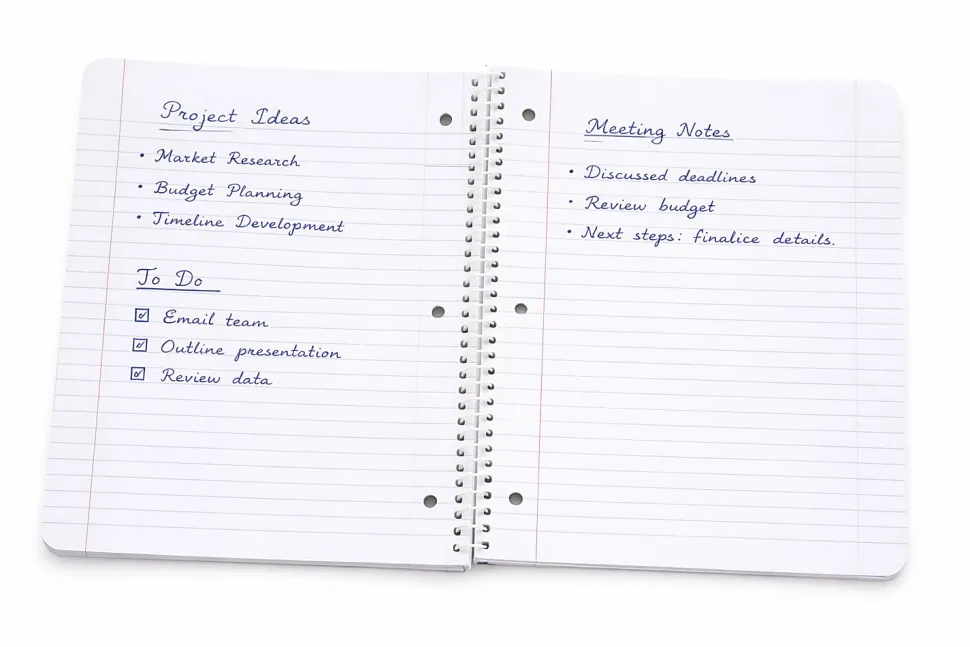 Project Ideas
• Market Research
• Budget Planning
• Timeline Development
To Do
☑ Email team
☑ Outline presentation
☑ Review data
Meeting Notes
• Discussed deadlines
• Review budget
• Next steps: finalice details.